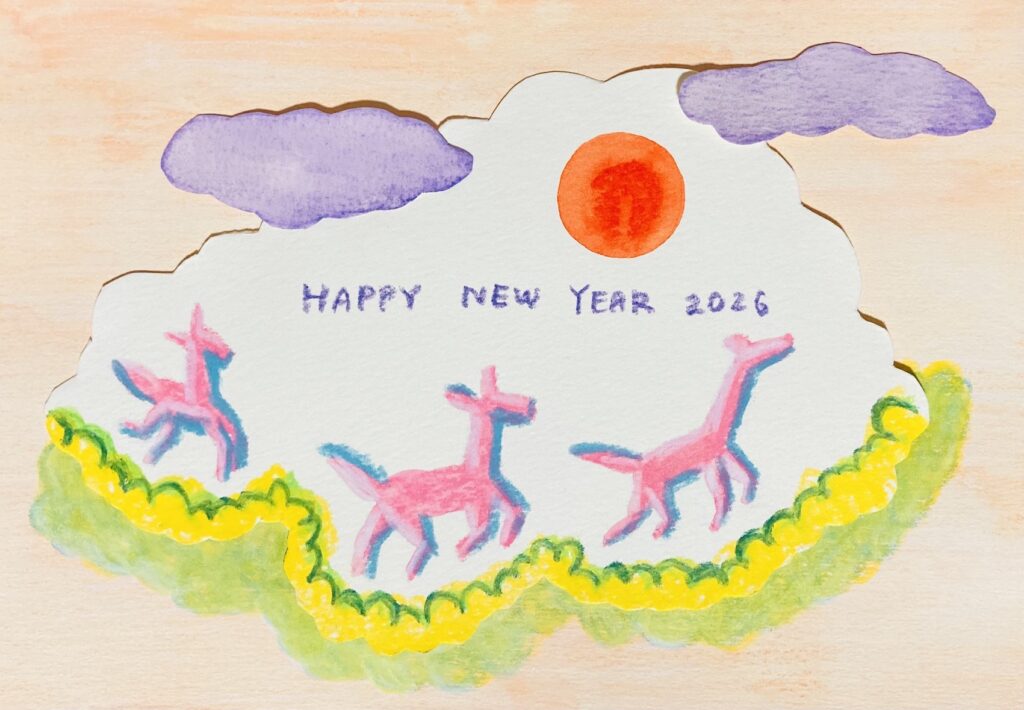 HAPPY NEW YEAR 2026